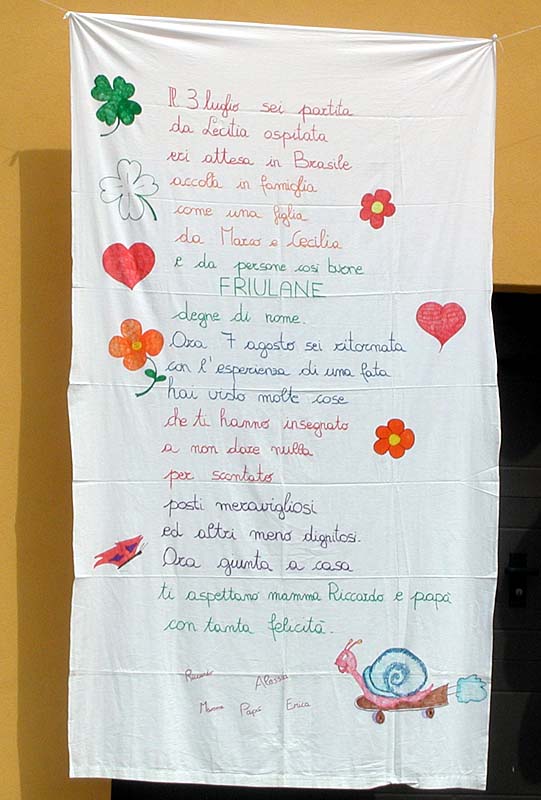 Il 3 luglio sei partita
da Lecitia ospitata
eri attesa in Brasile
accolta in famiglia
come una figlia
da Marco e Cecilia
e da persone così buone
FRIULANE
degne di nome.
Ora 7 agosto sei ritornata
con l'esperienza di una fata
hai visto molte cose
che ti hanno insegnato
a non dare nulla
per scontato
posti meravigliosi
ed altri meno dignitosi.
Ora giunta a casa
ti aspettano mamma Riccardo e papà
con tanta felicità.
Riccardo Alessia
Mamma Papà Enrica